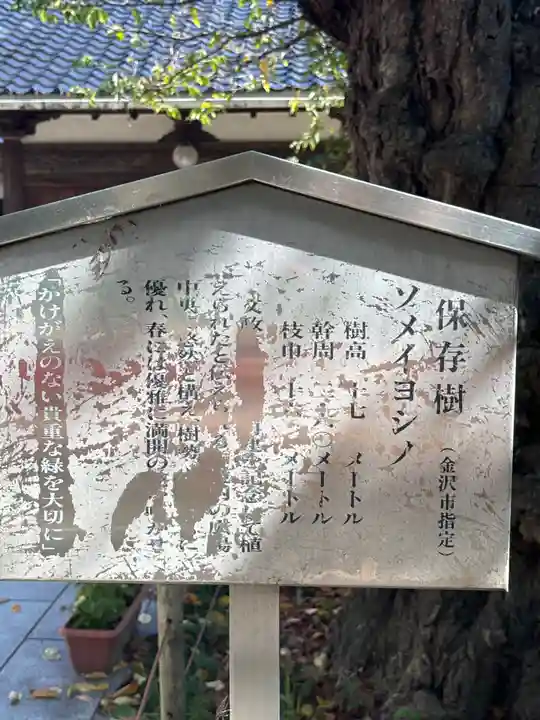 保存樹
(金沢市指定)
ソメイヨシノ
樹高 十七 メートル
幹周 六〇メートル
枝巾 十 メートル
文政 記念して植
えられたと伝 の広場
中央 と構え樹勢 に
優れ、春には優雅に満開の
る。
「かけがえのない貴重な緑を大切に」